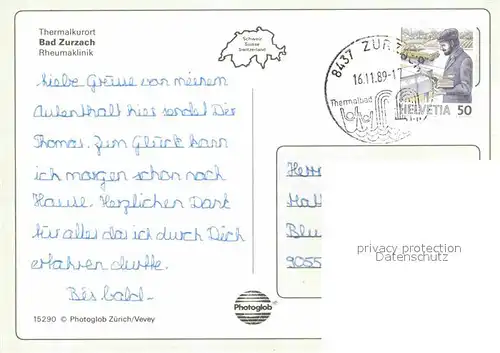 Thermalkurort
Bad Zurzach
Rheumaklinik
Schweiz
Suisse
Switzerland
8437 ZURZACH
16.11.89-1
Thermalbad
HELVETIA 50
Liebe Grüsse von meinem
Aufenthalt hier sendet Dir
Thomas. Zum Glück kann
ich morgen schon nach
Hause. Herzlichen Dank
für alles das ich durch Dich
erfahren durfte.
Bis bald-
Herr
Blu
9055
privacy protection
Datenschutz
Photoglob
15290 © Photoglob Zürich/Vevey